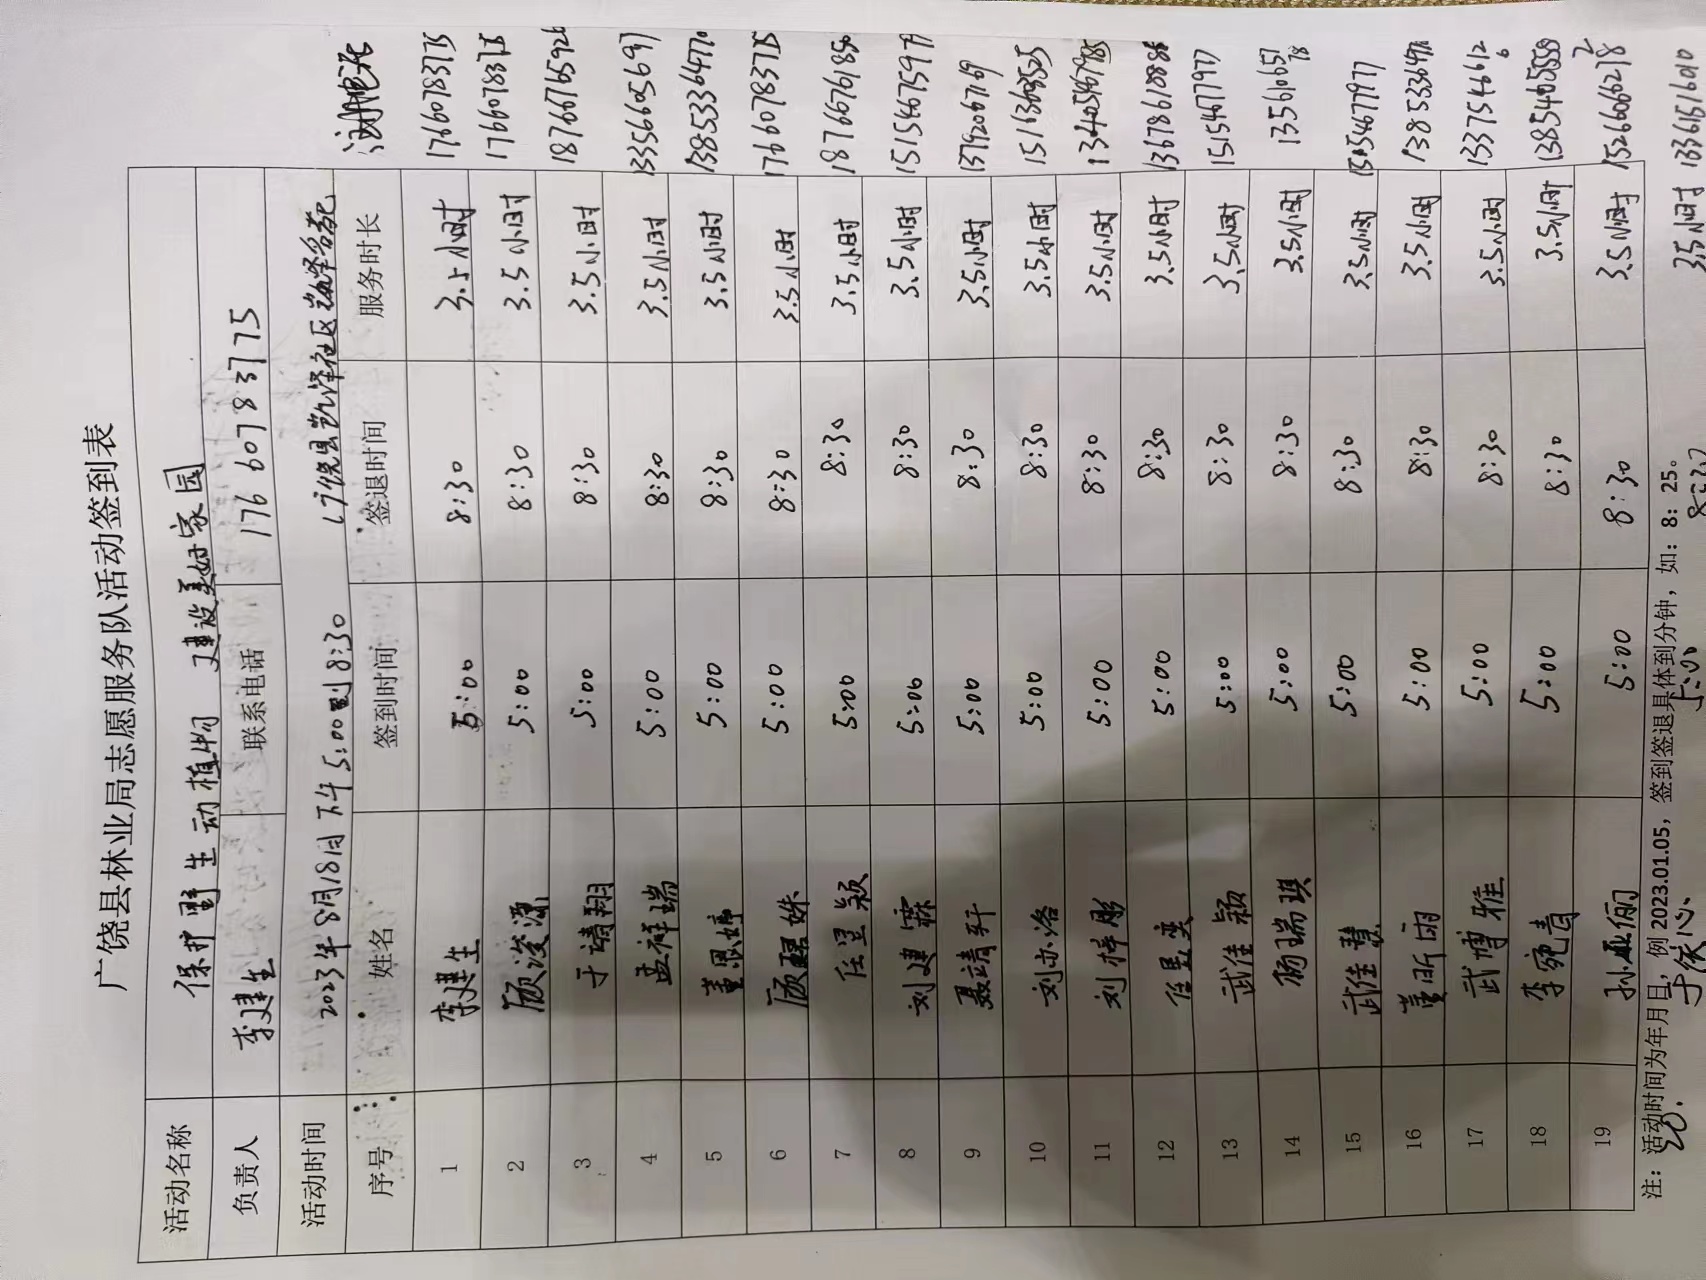 广饶县林业局志愿服务队活动签到表
活动名称 保护野生动植物 建设美好家园
负责人 李建生 联系电话 17660783775
活动时间 2023年8月18日下午5:00到8:30 广饶县凯泽社区
序号 姓名 签到时间 签退时间 服务时长
1 李建生 5:00 8:30 3.5小时 17660783775
2 顾浚源 5:00 8:30 3.5小时 17660783775
3 于靖翔 5:00 8:30 3.5小时 18766765926
4 孟祥瑞 5:00 8:30 3.5小时 13356605697
5 董恩婷 5:00 8:30 3.5小时 13853364770
6 顾珺姝 5:00 8:30 3.5小时 17660783775
7 任昱颖 5:00 8:30 3.5小时 18766761850
8 刘建霖 5:00 8:30 3.5小时 15154675977
9 聂靖轩 5:00 8:30 3.5小时 13792067169
10 刘亦洛 5:00 8:30 3.5小时
11 刘梓彤 5:00 8:30 3.5小时 13405467985
12 任昱奕 5:00 8:30 3.5小时
13 武佳颖 5:00 8:30 3.5小时 15154677977
14 杨瑞琪 5:00 8:30 3.5小时 13561065778
15 武佳慧 5:00 8:30 3.5小时 15154677977
16 董昕雨 5:00 8:30 3.5小时
17 武博雅 5:00 8:30 3.5小时 13375446126
18 李宛青 5:00 8:30 3.5小时 13854605559
19 孙亚俪 5:00 8:30 3.5小时
注：活动时间为年月日，例2023.01.05，签到签退具体到分钟，如：8：25。
20. 于依心 5:00 8:30 3.5小时 13361561010